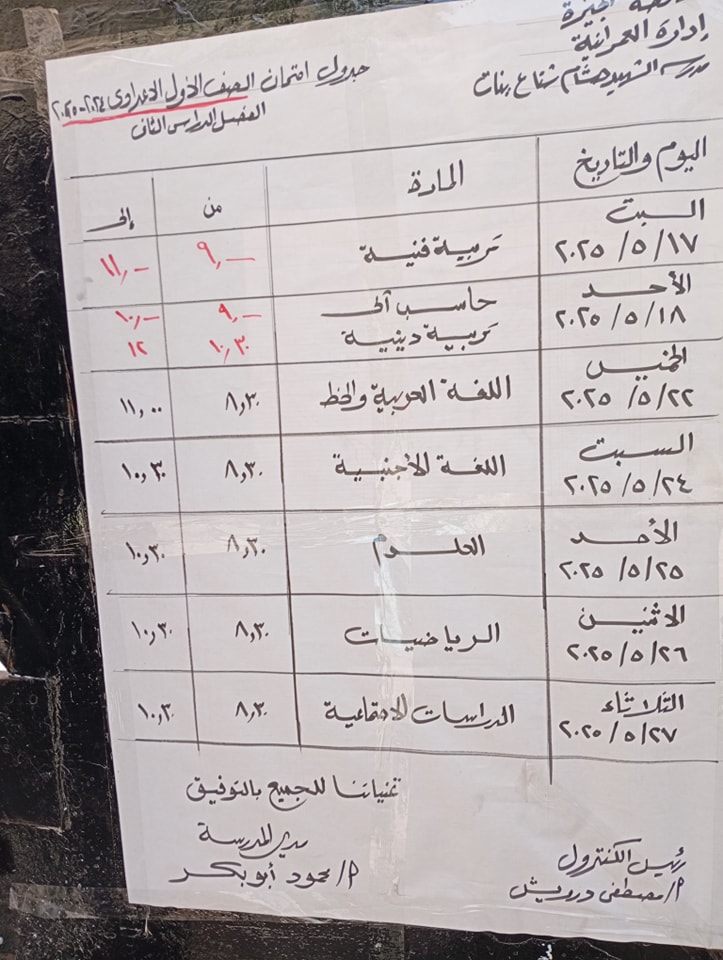 الجيزة
إدارة العمرانية
مدرسة الشهيد هشام شتا ع بنات
جدول امتحان الصف الأول الاعدادى ٢٠٢٤-٢٠٢٥
الفصل الدراسى الثانى
اليوم والتاريخ المادة من إلى
السبت ٢٠٢٥/٥/١٧ تربية فنية ٩,— ١١,—
الأحد ٢٠٢٥/٥/١٨ حاسب آلى ٩,— ١٠,—
تربية دينية ١٠,٣٠ ١٢
الخميس ٢٠٢٥/٥/٢٢ اللغة العربية والخط ٨,٣٠ ١١,٠٠
السبت ٢٠٢٥/٥/٢٤ اللغة الأجنبية ٨,٣٠ ١٠,٣٠
الأحد ٢٠٢٥/٥/٢٥ العلوم ٨,٣٠ ١٠,٣٠
الاثنين ٢٠٢٥/٥/٢٦ الرياضيات ٨,٣٠ ١٠,٣٠
الثلاثاء ٢٠٢٥/٥/٢٧ الدراسات الاجتماعية ٨,٣٠ ١٠,٣٠
تمنياتنا للجميع بالتوفيق
رئيس الكنترول
أ/ مصطفى درويش
مدير المدرسة
أ/ محمود أبو بكر